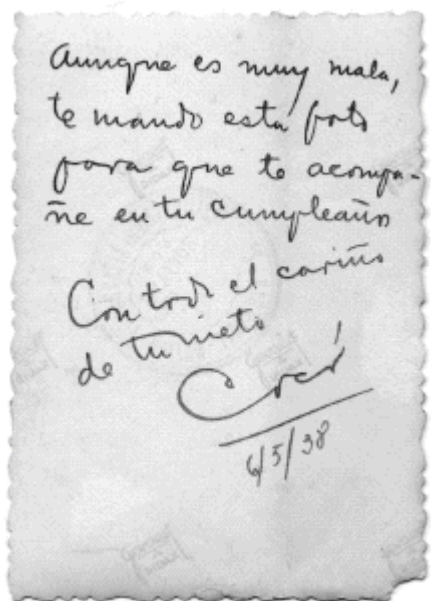 Aunque es muy mala,
te mando esta foto
para que te acompa-
ñe en tu cumpleaños
Con todo el cariño
de tu nieto
6/5/38